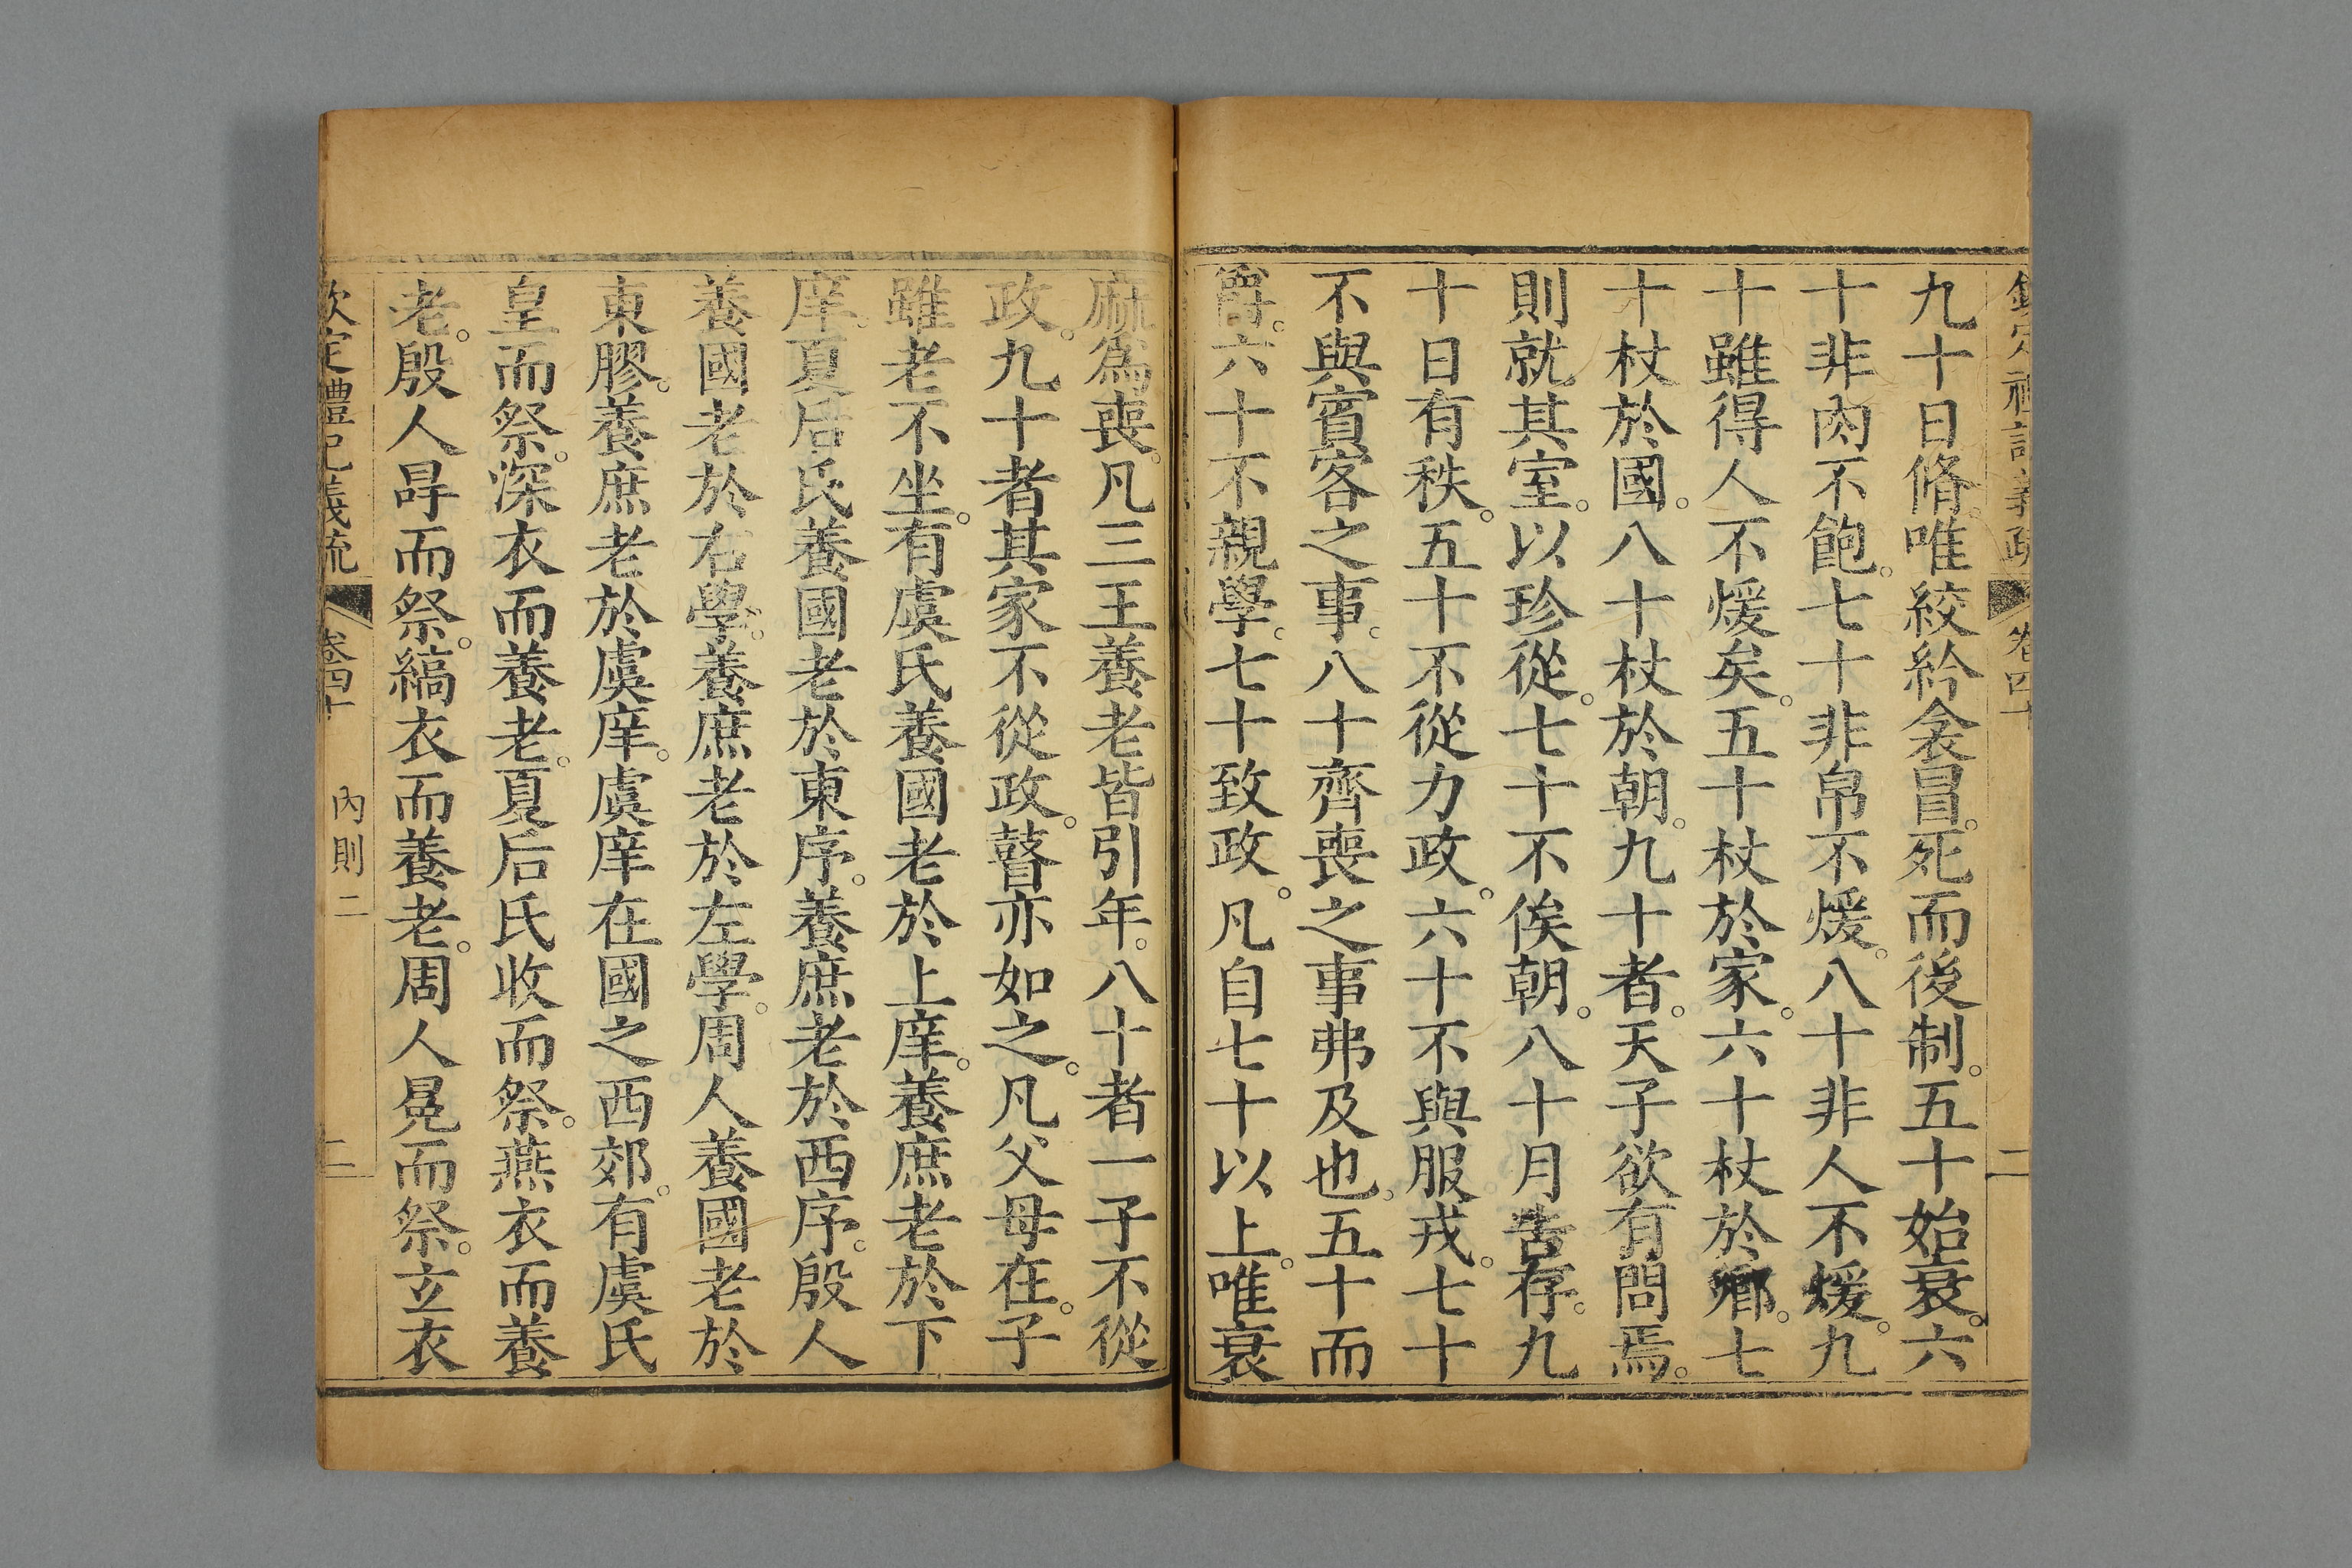 卷四十
二
九十日脩。唯絞紟衾冒。死而後制。五十始衰。六
十非肉不飽。七十非帛不煖。八十非人不煖。九
十雖得人不煖矣。五十杖於家。六十杖於鄉。七
十杖於國。八十杖於朝。九十者。天子欲有問焉。
則就其室。以珍從。七十不俟朝。八十月告存。九
十日有秩。五十不從力政。六十不與服戎。七十
不與賓客之事。八十齊喪之事弗及也。五十而
爵。六十不親學。七十致政。凡自七十以上。唯衰
麻爲喪。凡三王養老皆引年。八十者一子不從
政。九十者其家不從政。瞽亦如之。凡父母在。子
雖老不坐。有虞氏養國老於上庠。養庶老於下
庠。夏后氏養國老於東序。養庶老於西序。殷人
養國老於右學。養庶老於左學。周人養國老於
東膠。養庶老於虞庠。虞庠在國之西郊。有虞氏
皇而祭。深衣而養老。夏后氏收而祭。燕衣而養
老。殷人冔而祭。縞衣而養老。周人冕而祭。玄衣
欽定禮記義疏
卷四十
內則二
二